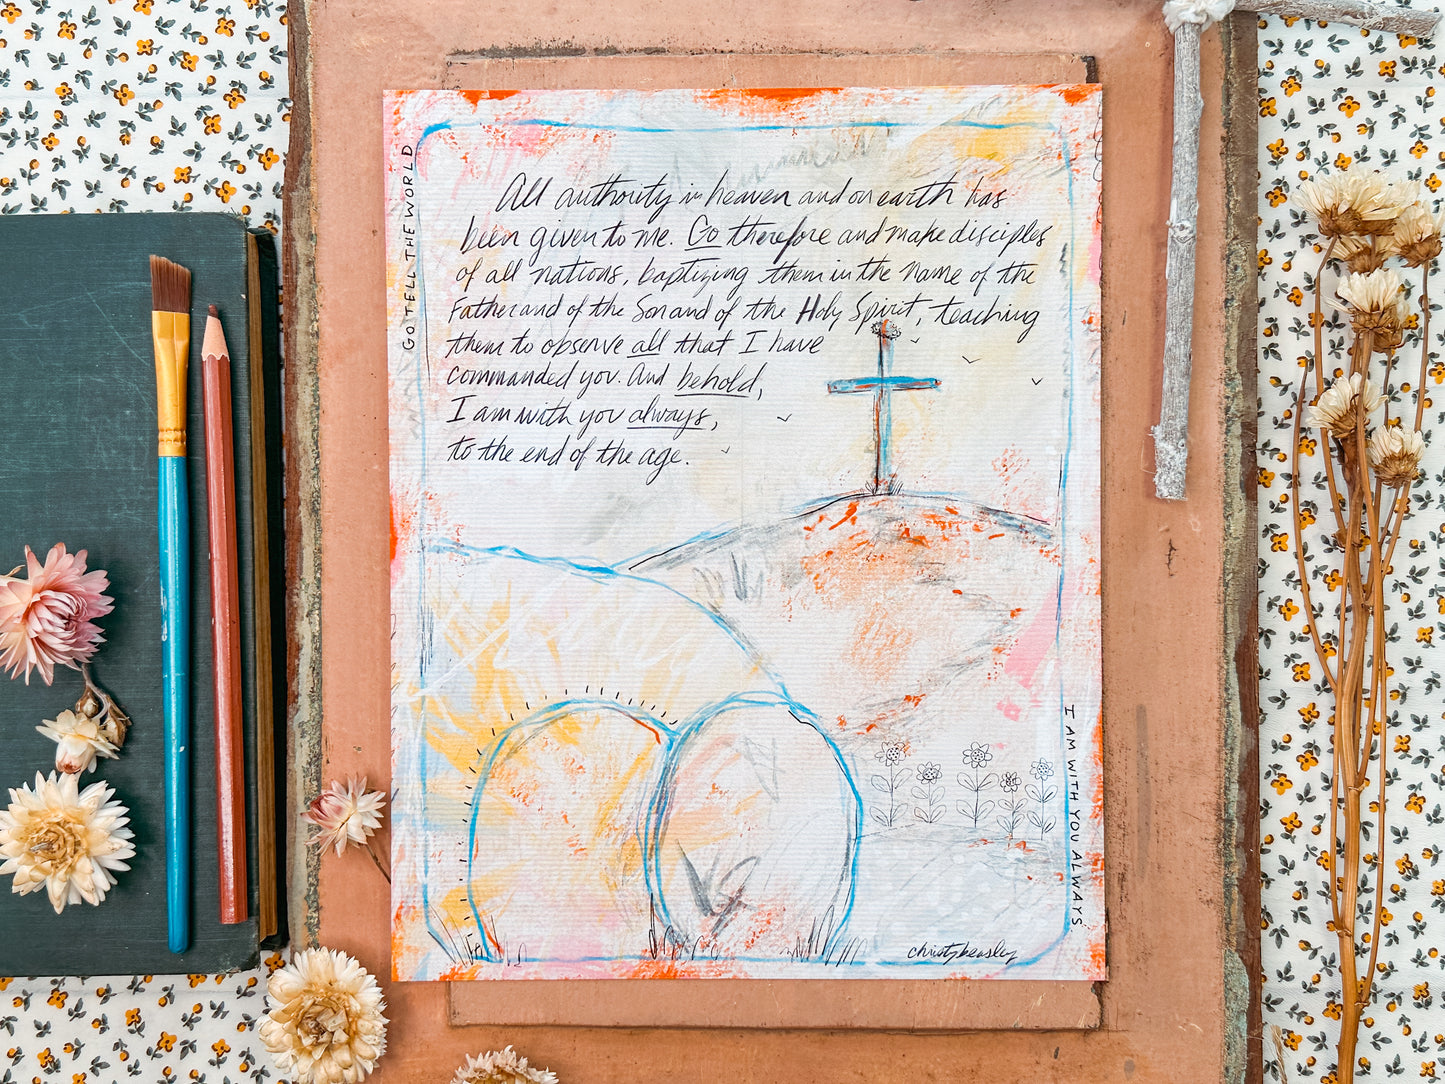 All authority in heaven and on earth has
been given to me. Go therefore and make disciples
of all nations, baptizing them in the name of the
Father and of the Son and of the Holy Spirit, teaching
them to observe all that I have
commanded you. And behold,
I am with you always,
to the end of the age.
GO TELL THE WORLD
I AM WITH YOU ALWAYS
christybeasley